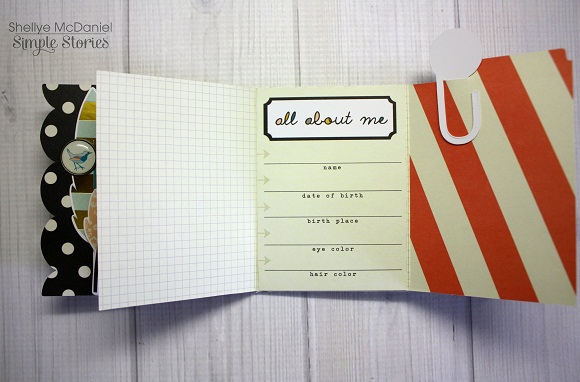 Shellye McDaniel
Simple Stories
all about me
name
date of birth
birth place
eye color
hair color